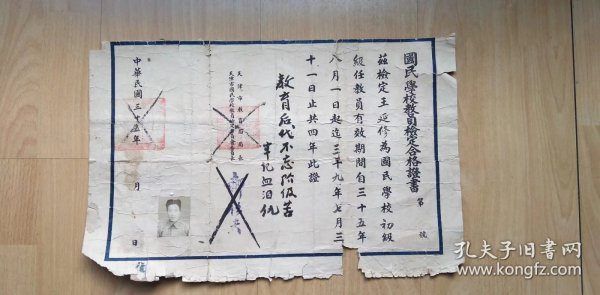 國民學校教員檢定合格證書
第 號
茲檢定王延修為國民學校初級
級任教員有效期間自三十五年
八月一日起迄三十九年七月三
十一日止共四年此證
教育后代不忘阶级苦
牢记血泪仇
天津市教育局局長
中華民國三十五年 月 日
孔夫子旧书网
www.kongfz.com